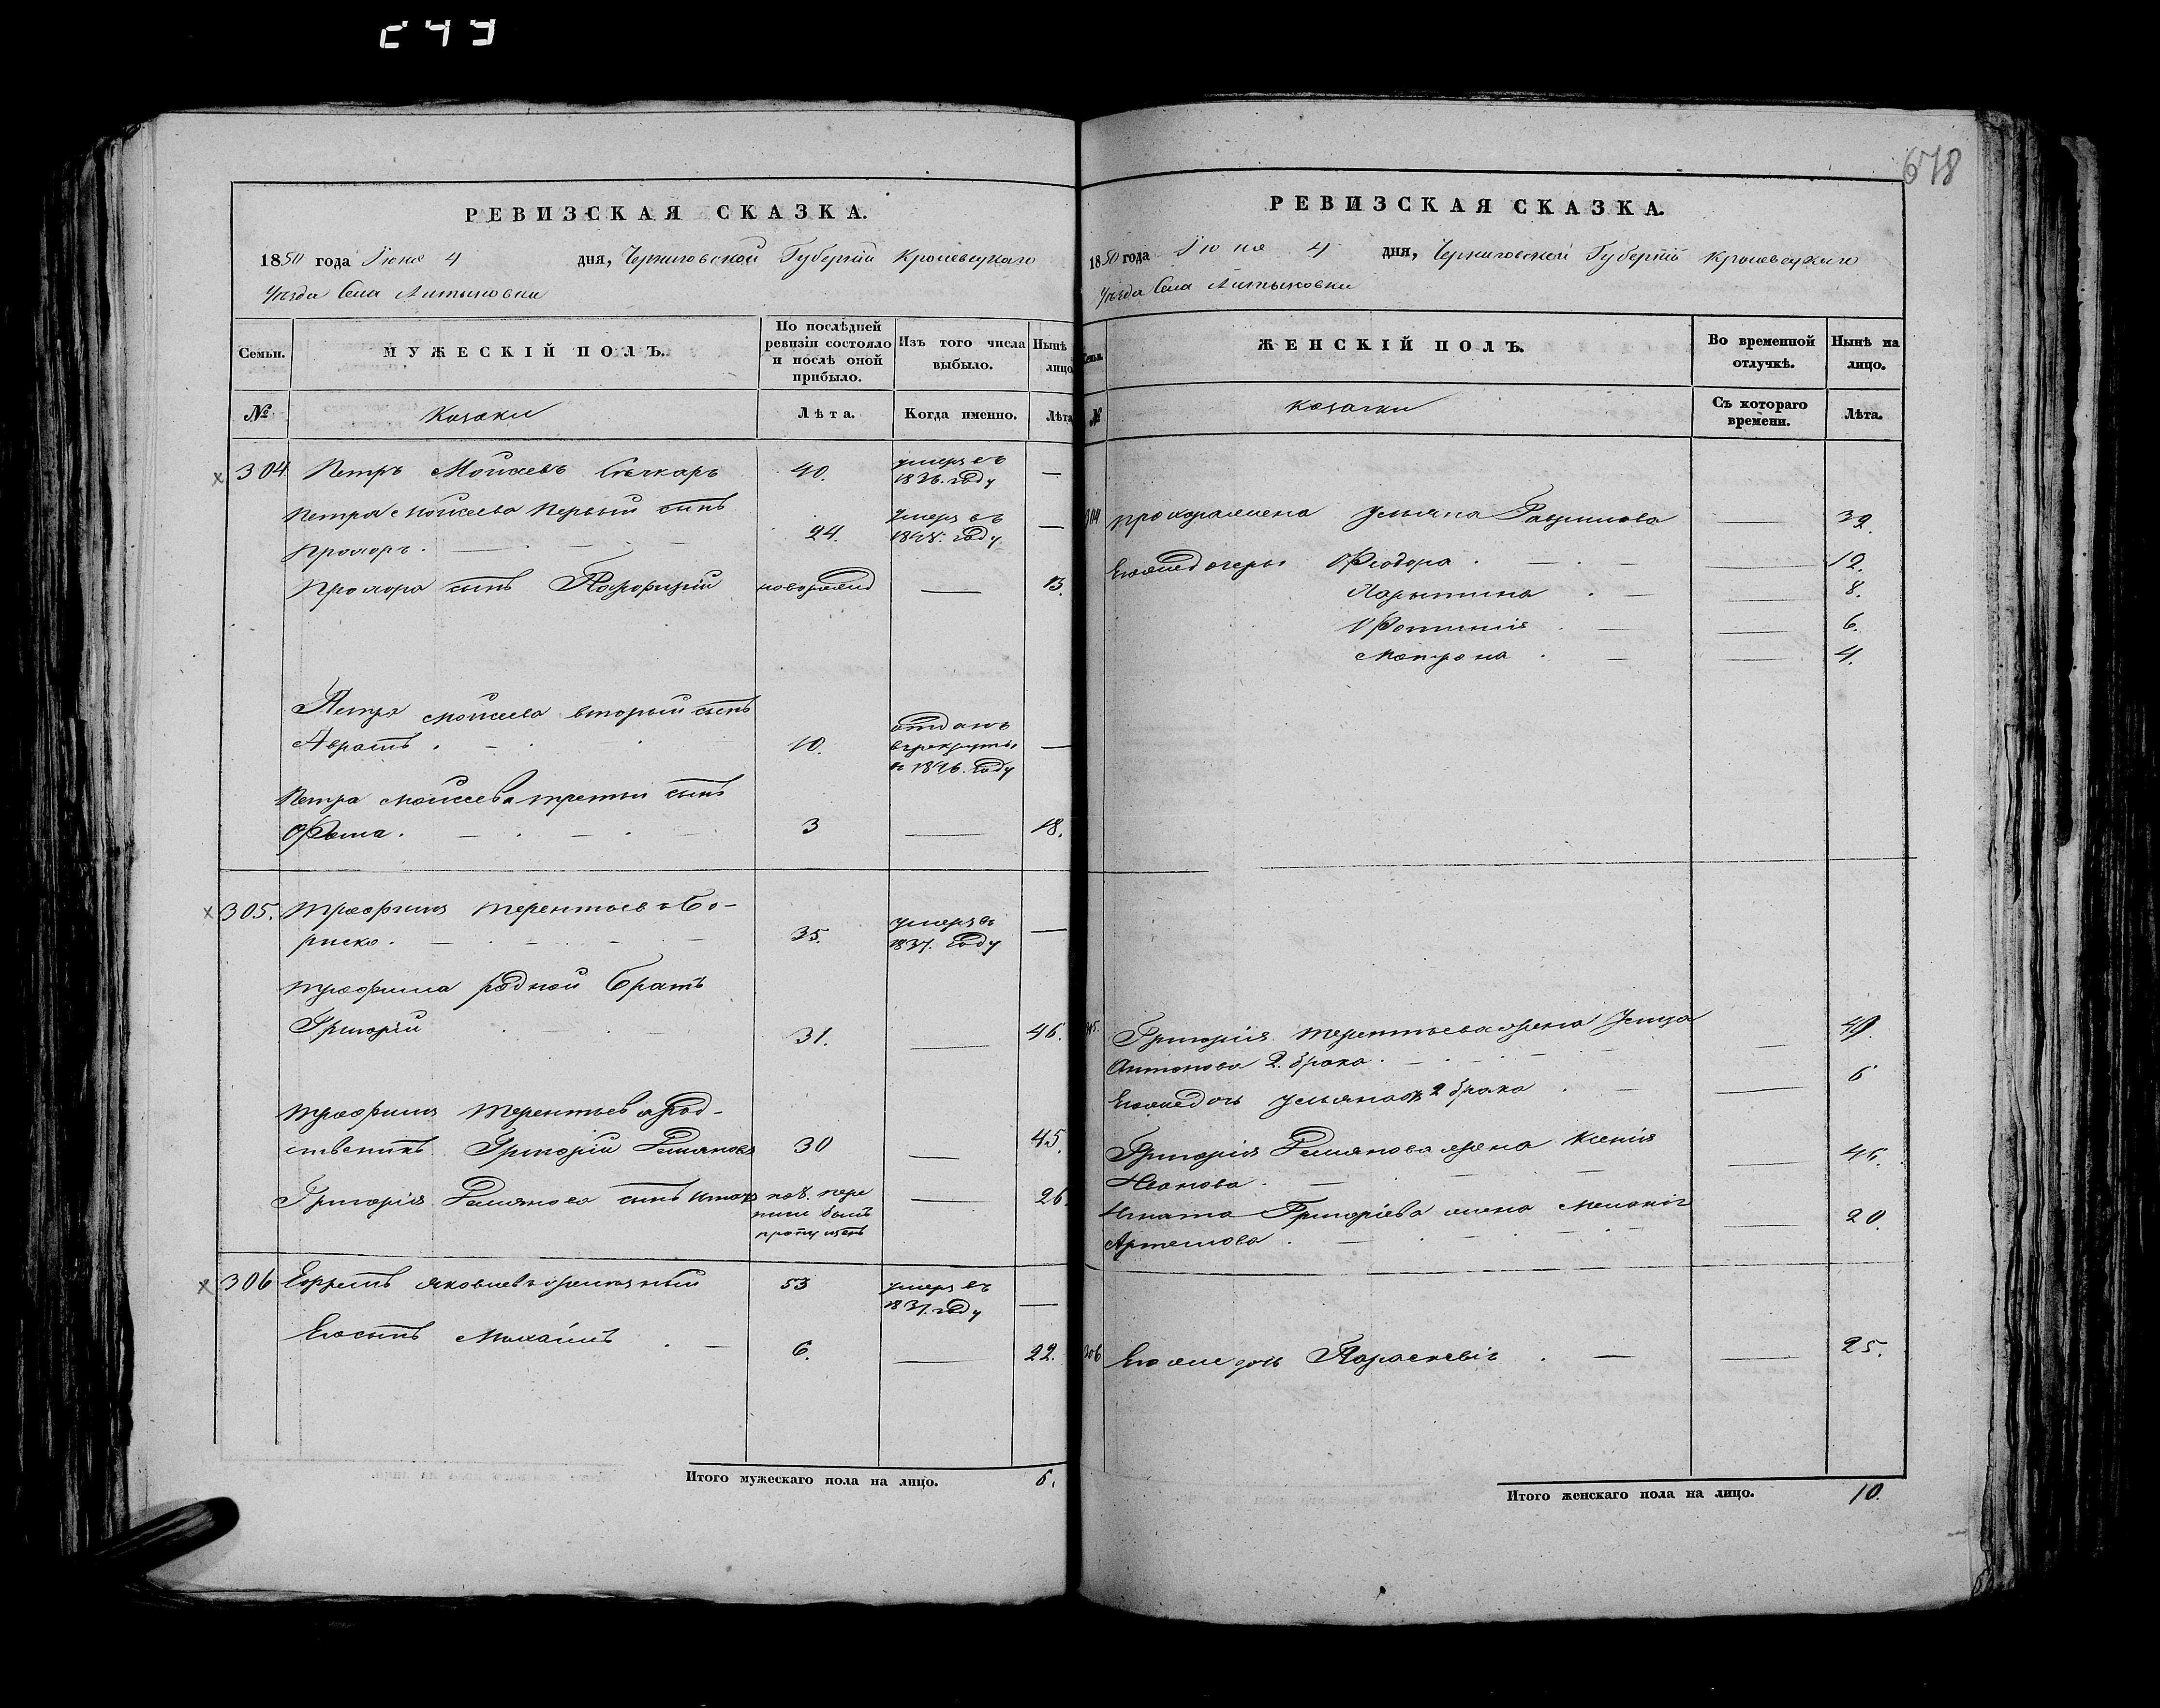 249
678
РЕВИЗСКАЯ СКАЗКА.
1850 года Іюня 4 дня, Черниговской Губерніи Кролевецкаго
Уѣзда Села Литвиновки
Семьи.
МУЖЕСКІЙ ПОЛЪ.
По послѣдней ревизіи состояло и послѣ оной прибыло.
Изъ того числа выбыло.
Нынѣ лицо
№
Козаки
Лѣта.
Когда именно.
Лѣта
304 Петръ Моисеевъ 40. умеръ въ 1836. году —
Петра Моисеева первый сынъ
Прохоръ. 24. умеръ въ 1848. году —
Прохора сынъ Порфирій новорожд — 13.
Петра Моисеева вторый сынъ
10. отданъ въ рекруты в 1846. году —
Петра Моисеева третій сынъ
Ѳома. 3 — 18.
305. Трофимъ Терентьевъ Бо-
риско. 35. умеръ въ 1837. году —
Трофима родной братъ
Григорій 31. — 46.
Трофима Терентьева род-
ственикъ Григорій Демяновъ 30 — 45.
Григорія Демянова сынъ Игнатъ пере писи былъ пропущенъ — 26.
306 Ефремъ Яковлевъ 53 умеръ въ 1837. году —
Его сынъ Михаилъ 6. — 22.
Итого мужескаго пола на лицо. 6.
РЕВИЗСКАЯ СКАЗКА.
1850 года Іюня 4 дня, Черниговской Губерніи Кролевецкаго
Уѣзда Села Литвиновки
Семьи.
ЖЕНСКІЙ ПОЛЪ.
Во временной отлучкѣ.
Нынѣ на лицо.
№
Козачки
Съ котораго времени.
Лѣта.
304 Прохора жена Ульяна Гаврилова — 39.
Его же дочери Ѳеодора — 12.
— 8.
Фотинія — 6.
Матрона — 4.
305. Григорія Терентьева жена
Антонова 2. брака — 49.
Его же дочь Ульяна 2 брака — 6
Григорія Демянова жена Ксенія
Иванова — 45.
Игната Григоріева жена Меланія
Артемова — 20.
306 Его же дочь Параскевія — 25.
Итого женскаго пола на лицо. 10.